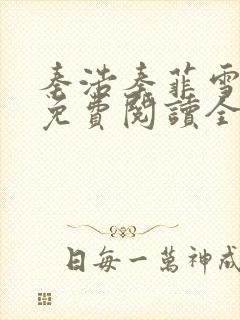 秦浩秦菲雪
免費閱讀全
日每一萬神成